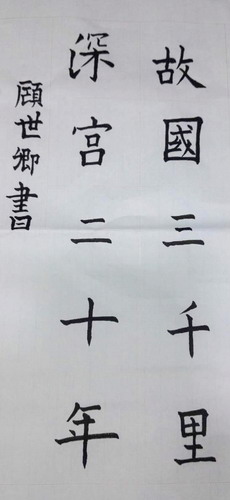 故國三千里
深宮二十年
顧世卿書